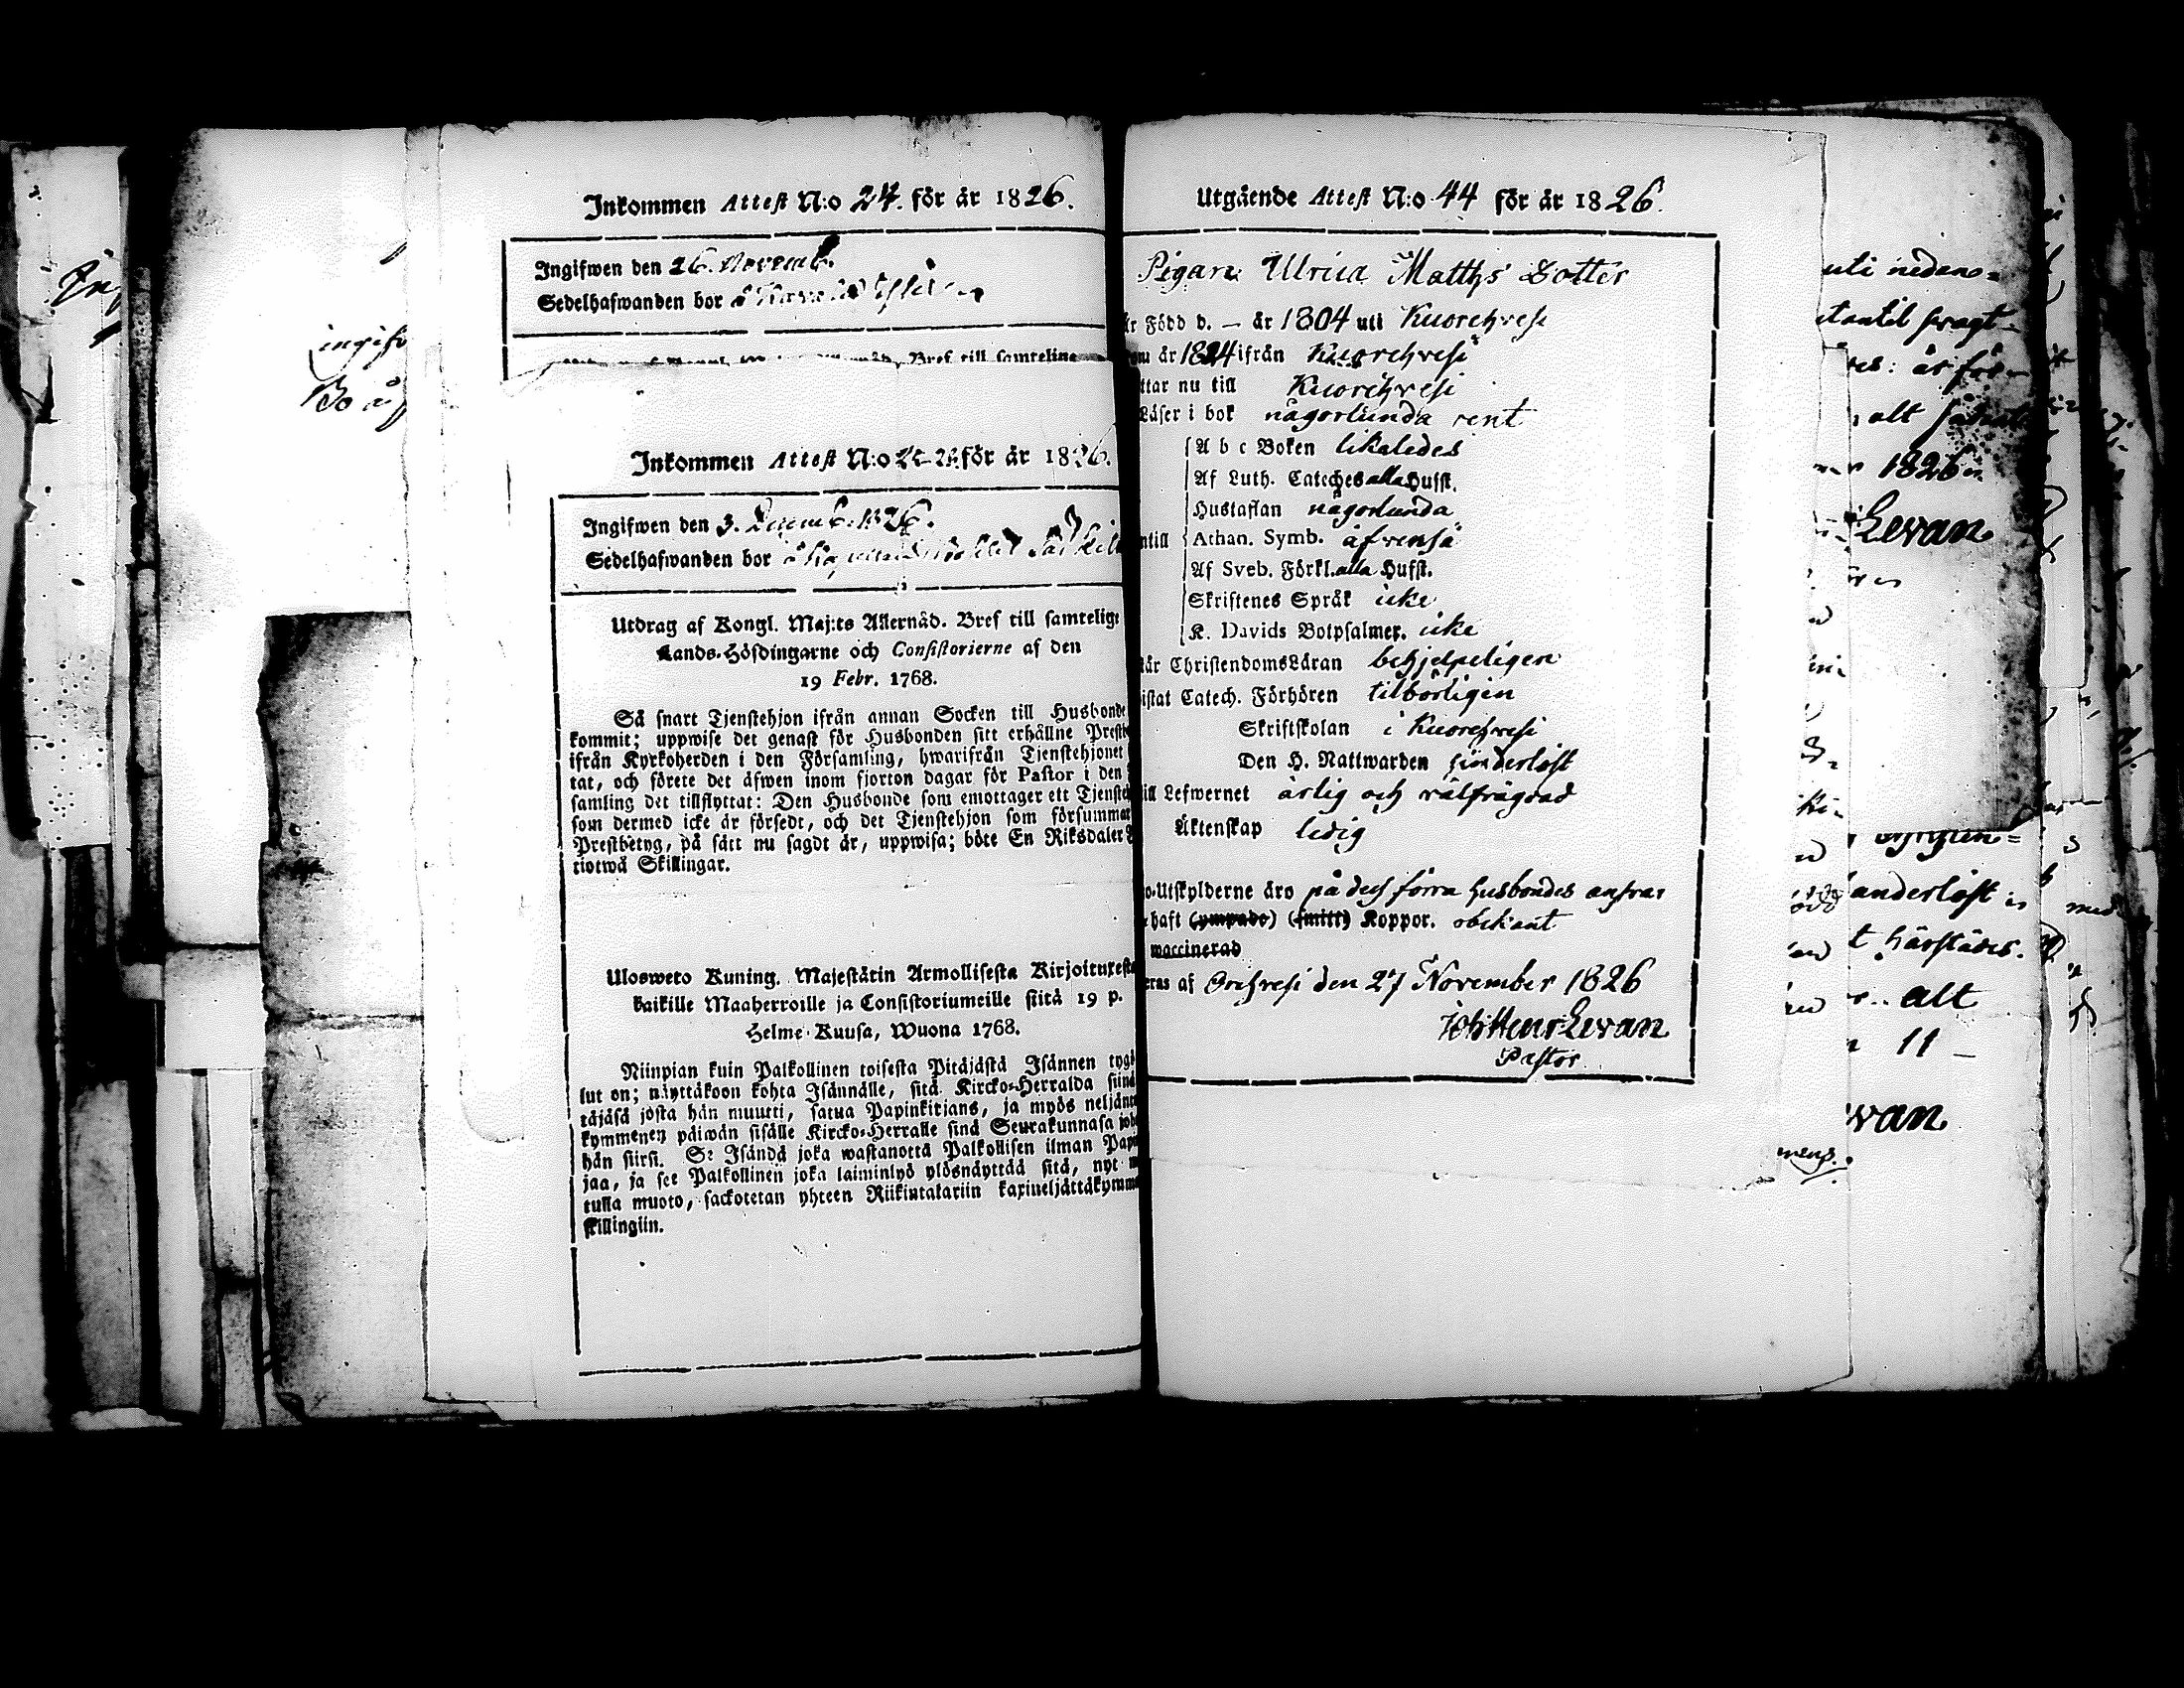 Inkommen Attest N:o 24. för år 1826.
Ingifwen den 26. Novemb.
Sedelhafwanden bor å
Bref till samtelige
Inkommen Attest N:o för år 1826.
Ingifwen den 3. Decemb. 1826.
Sedelhafwanden bor å
Utdrag af Kongl. Maj:ts Allernåd. Bref till samtelige
Lands-Höfdingarne och Consistorierne af den
19 Febr. 1768.
Så snart Tjenstehjon ifrån annan Socken till Husbonde
kommit; uppwise det genast för Husbonden sitt erhållne Prestb
ifrån Kyrkoherden i den Församling, hwarifrån Tjenstehjonet
tat, och förete det äfwen inom fjorton dagar för Pastor i den
samling det tillflyttat: Den Husbonde som emottager ett Tjensteh
som dermed icke är försedt, och det Tjenstehjon som försummar
Prestbetyg, på sätt nu sagdt är, uppwisa; böte En Riksdaler
tiotwå Skillingar.
Ulosweto Kuning. Majestätin Armollisesta Kirjoituxesta
kaikille Maaherroille ja Consistoriumeille siitä 19 p.
Helme-Kuusa, Wuona 1768.
Niinpian kuin Palkollinen toisesta Pitäjästä Isännen tygö
lut on; näyttäköön kohta Isännälle, sitä Kircko-Herralda siinä
täjäsä josta hän muutti, saatua Papinkirjans, ja myös neljänn
kymmenen päiwän sisälle Kircko-Herralle siinä Seurakunnasa joh
hän siirsi. Se Isändä joka wastanottä Palkollisen ilman Papin
jaa, ja se Palkollinen joka laiminlyö ylösnäyttää sitä, nyt
tulla muoto, sackotetan yhteen Riikintalariin kaxineljättäkymme
skillingiin.
Utgående Attest N:o 44 för år 1826.
Pigan Ulrica Matths Dotter
är Född d. — år 1804 uti Kuorehvesi
om år 1824 ifrån Kuorehvesi
ttar nu till Kuorehvesi
Läser i bok någorlunda rent
A b c Boken likaledes
Af Luth. Cateches alla Hufst.
Hustaflan någorlunda
ntill Athan. Symb. äfvenså
Af Sveb. Förkl. alla Hufst.
Skriftenes Språk icke
K. Davids Botpsalmer. icke
tår ChristendomsLäran behjelpeligen
istat Catech. Förhören tilbörligen
Skriftskolan i Kuorehvesi
Den H. Nattwarden hinderlöst
ill Lefwernet ärlig och välfrägdad
Äktenskap ledig
o-Utskylderne äro på dess förra husbondes ansvar
haft (ympade) (smitt) Koppor. obekant
waccinerad
eras af Orihvesi den 27 November 1826
Joh Henr Levan
Pastor.
uti nedano=
1826
Levan
anderlöst
t härstädes.
alt
11
van